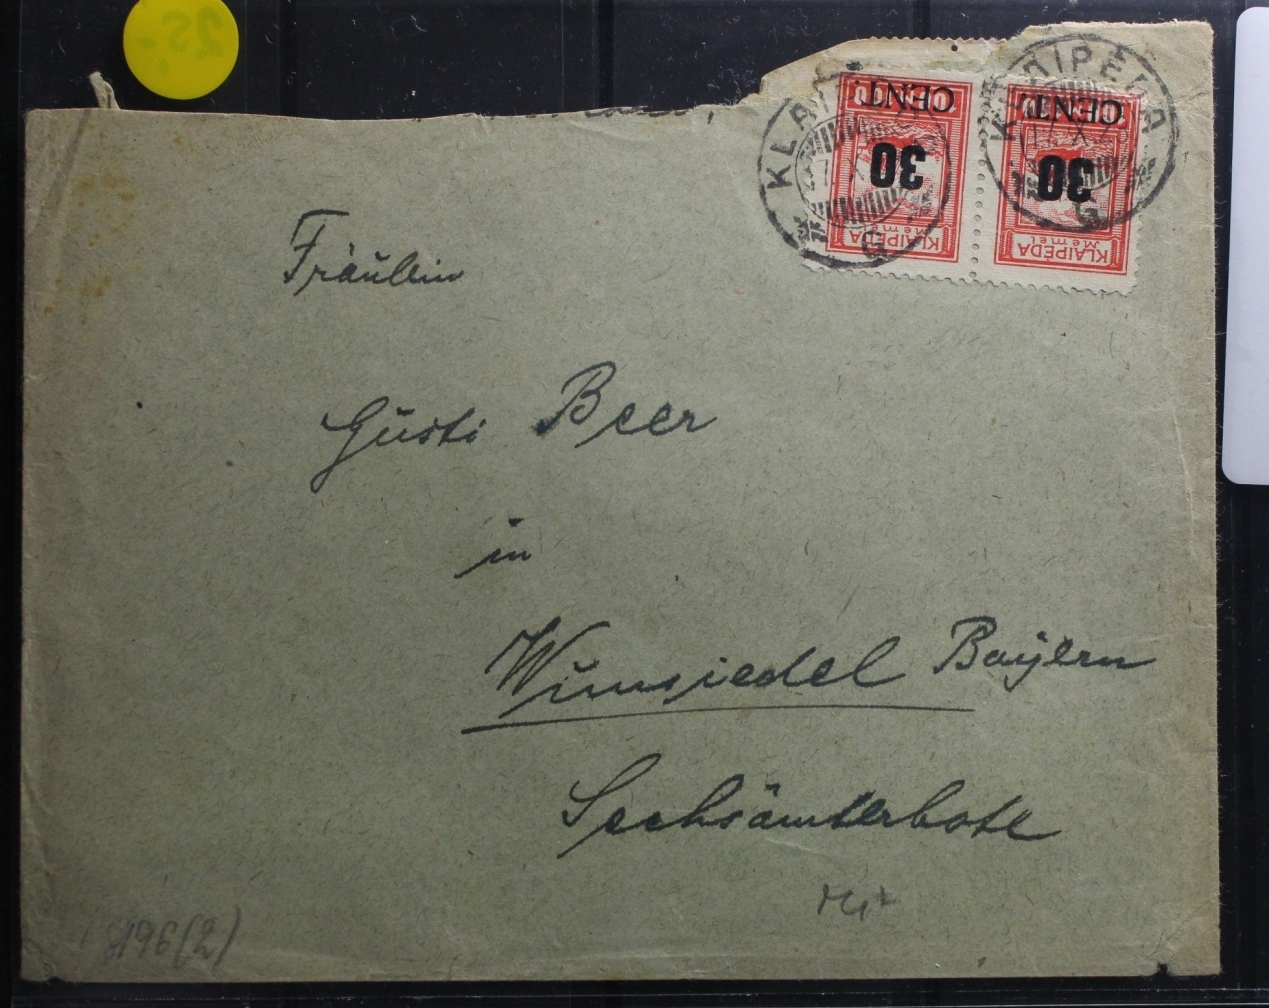 25.-
KLAIPĖDA
G
KLAIPĖDA
G
CENT.
30
KLAIPĖDA
Memel
CENT.
30
KLAIPĖDA
Memel
Fräulein
Gusti Beer
in
Wunsiedel Bayern
Sechsämterbote
196(2)